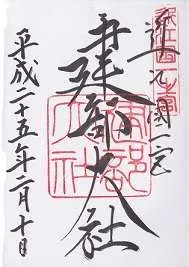 近江國一宮
建部大社
平成二十五年二月十日
建部大社